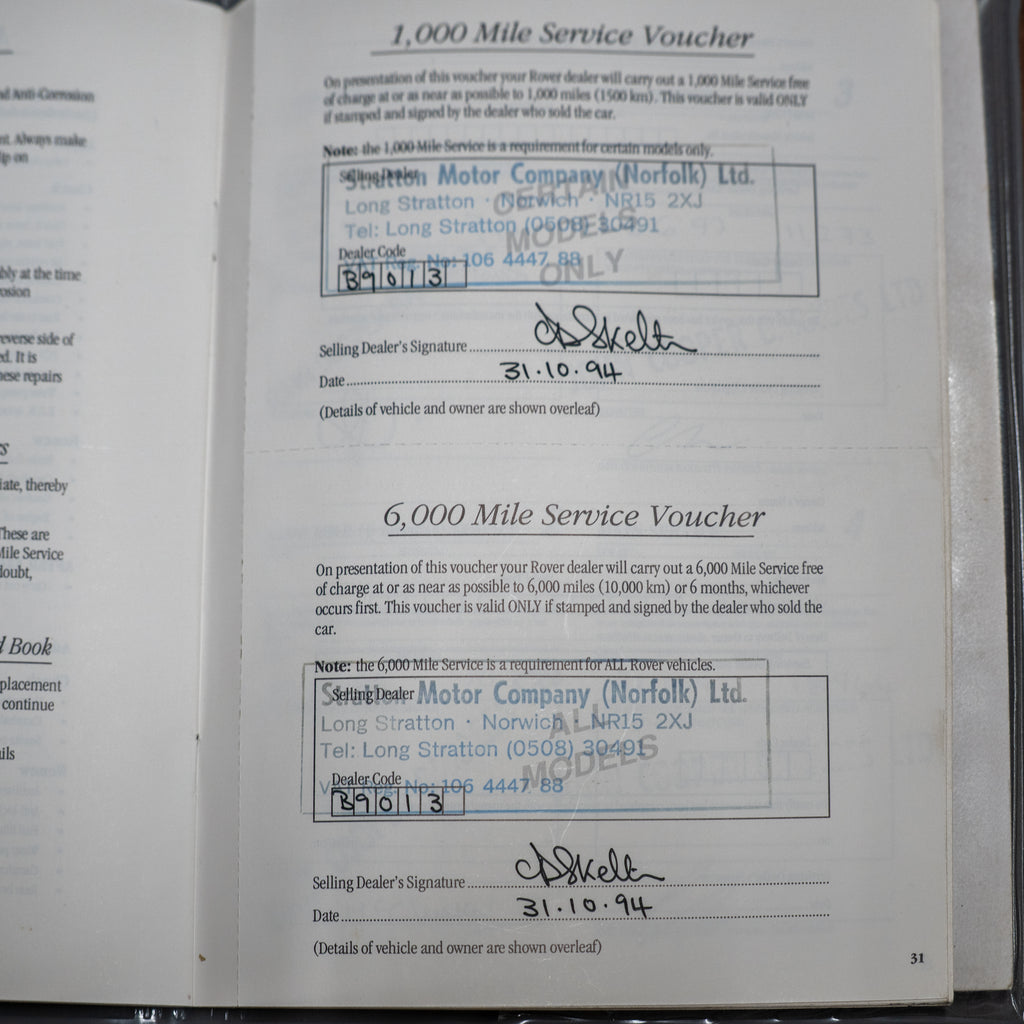 d Anti-Corrosion
nt. Always make
ip on
bly at the time
osion
everse side of
ed. It is
hese repairs
s
iate, thereby
These are
Mile Service
doubt,
d Book
placement
continue
ils
1,000 Mile Service Voucher
On presentation of this voucher your Rover dealer will carry out a 1,000 Mile Service free
of charge at or as near as possible to 1,000 miles (1500 km). This voucher is valid ONLY
if stamped and signed by the dealer who sold the car.
Note: the 1,000 Mile Service is a requirement for certain models only.
Selling Dealer
Stratton Motor Company (Norfolk) Ltd.
Long Stratton · Norwich · NR15 2XJ
Tel: Long Stratton (0508) 30491
CERTAIN
MODELS
ONLY
Dealer Code
VAT Reg. No: 106 4447 88
B9013
Selling Dealer's Signature
Date 31.10.94
(Details of vehicle and owner are shown overleaf)
6,000 Mile Service Voucher
On presentation of this voucher your Rover dealer will carry out a 6,000 Mile Service free
of charge at or as near as possible to 6,000 miles (10,000 km) or 6 months, whichever
occurs first. This voucher is valid ONLY if stamped and signed by the dealer who sold the
car.
Note: the 6,000 Mile Service is a requirement for ALL Rover vehicles.
Selling Dealer
Stratton Motor Company (Norfolk) Ltd.
Long Stratton · Norwich · NR15 2XJ
Tel: Long Stratton (0508) 30491
ALL
MODELS
Dealer Code
VAT Reg. No: 106 4447 88
B9013
Selling Dealer's Signature
Date 31.10.94
(Details of vehicle and owner are shown overleaf)
31